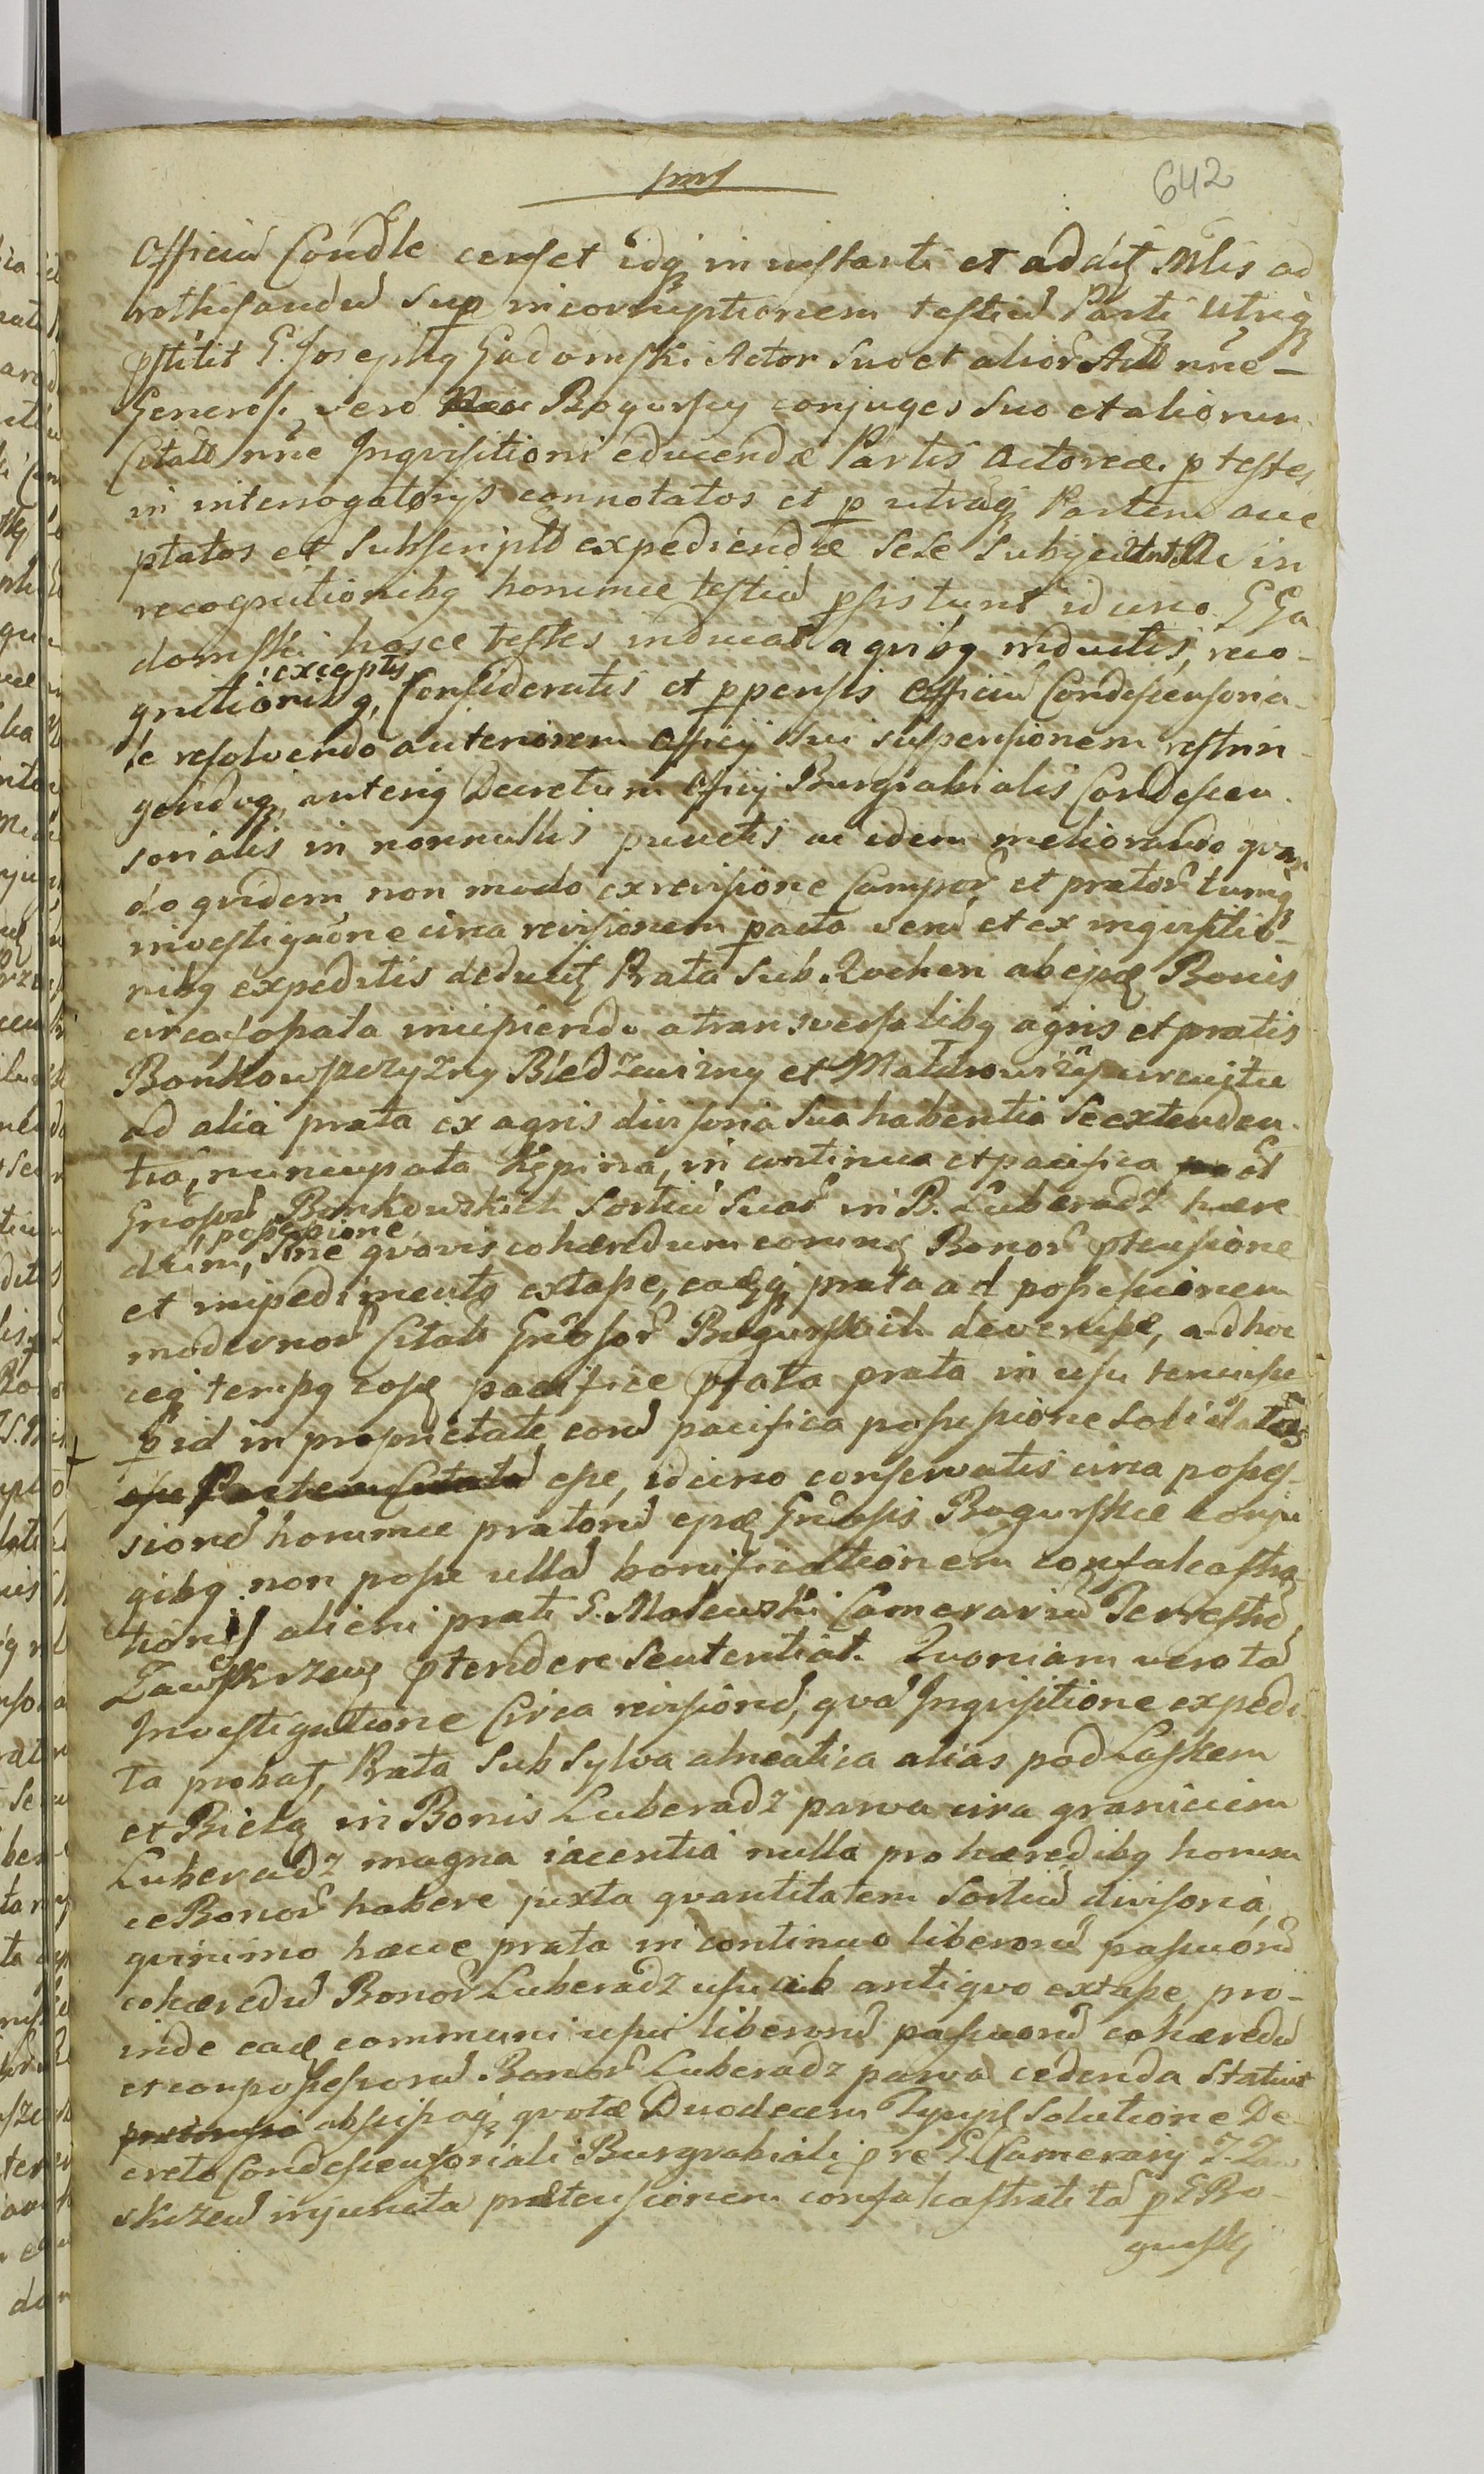 642
Officiu Condle censet idq in instanti et addit Mtis ad
rothisandu sup incorruptionem testiu Parti Utriq
pstitit G. Josephq Gadomski Actor suo et alior Actt nne
Generosi vero Bogursey conjuges suo et aliorum
Citatt nne Inquisitioni educendæ Partis Actoreæ p testes
in interrogatorijs connotatos et p utraq Partem acce
ptatos et subscripto expediendæ sese subjecit
recognitionibq horumce testiu psistunt iduno G Ga
domski hosce testes inducat a qvibq inductis, reco-
exceptis
gnitionibq, Consideratis et ppensis Officiu Condescensoria-
le resolvendo anteriorem Officij sui suspensionem restrin-
gendoq anteriq Decretum Officij Burgrabialis Condescen-
sorialis in nonnullis punctis ac idem meliorando qvan
do qvidem non modo ex revisione Campor et prator tumq
investigatne circa revisionem pacta veru et ex inqvisitio-
nibq expeditis deducit Prata sub Rochen ab ejsq Bonis
circa Łopata incipiendo a transversalibq agris et pratis
Bońkowszczyzny Bledzewizny et circuitu
ad alia prata ex agris divisoria sua habentia se extenden-
tia, nuncupata Kępina, in continua et pacifica
Gnosor Bonkowskich Sortiu Suar in B. Luberadz hære
possessione
dum, sine qvovis cohæredum eorunq Bonor ptensione
et impedimento extasse, eaq prata ad possessionem
modernor Citatt Gnosor Bogurskich devenisse, adhoc
ceq tempq eosq pacifice pfata prata in usu tenuisse
p id in proprietate, eoru pacifica possessione solidatos
esse Partem Citata esse, iduno conservatis circa posses-
sionē horumce pratoru epæ Gnosis Bogurskie conju
gibq non posse ulla bonificationem confalcastra
tionis alieni prati G. Malewski Camerariu Terrestre
Zawskrzens ptendere sententiat. Qvoniam vero ta
Investigatione Circa revisionē, qva Inqvisitione expedi
ta probat, Prata sub Sylva alneatica alias pod Laskem
et Bielą in Bonis Luberadz parva circa graniciem
Luberadz magna jacentia nulla pro hæredibq horum
ce Bonor habere juxta qvantitatem Sortiu divisoria,
qvinimo hæcce prata in continuo liberoru pascuoru
cohæredu Bonor Luberadz usu ab antiqvo extasse, pro-
inde eaq communi usui liberoru pascuoru cohæredu
et compossessoru Bonor Luberadz parva cedenda statuit
abscissaq qvotæ Duodecem Tynph solutione De-
creto Condescensoriali Burgrabiali p re G. Camerarij T. Zaw
skrzens injuncta prætensionem confalcastrati ta p G Bo-
gurskj